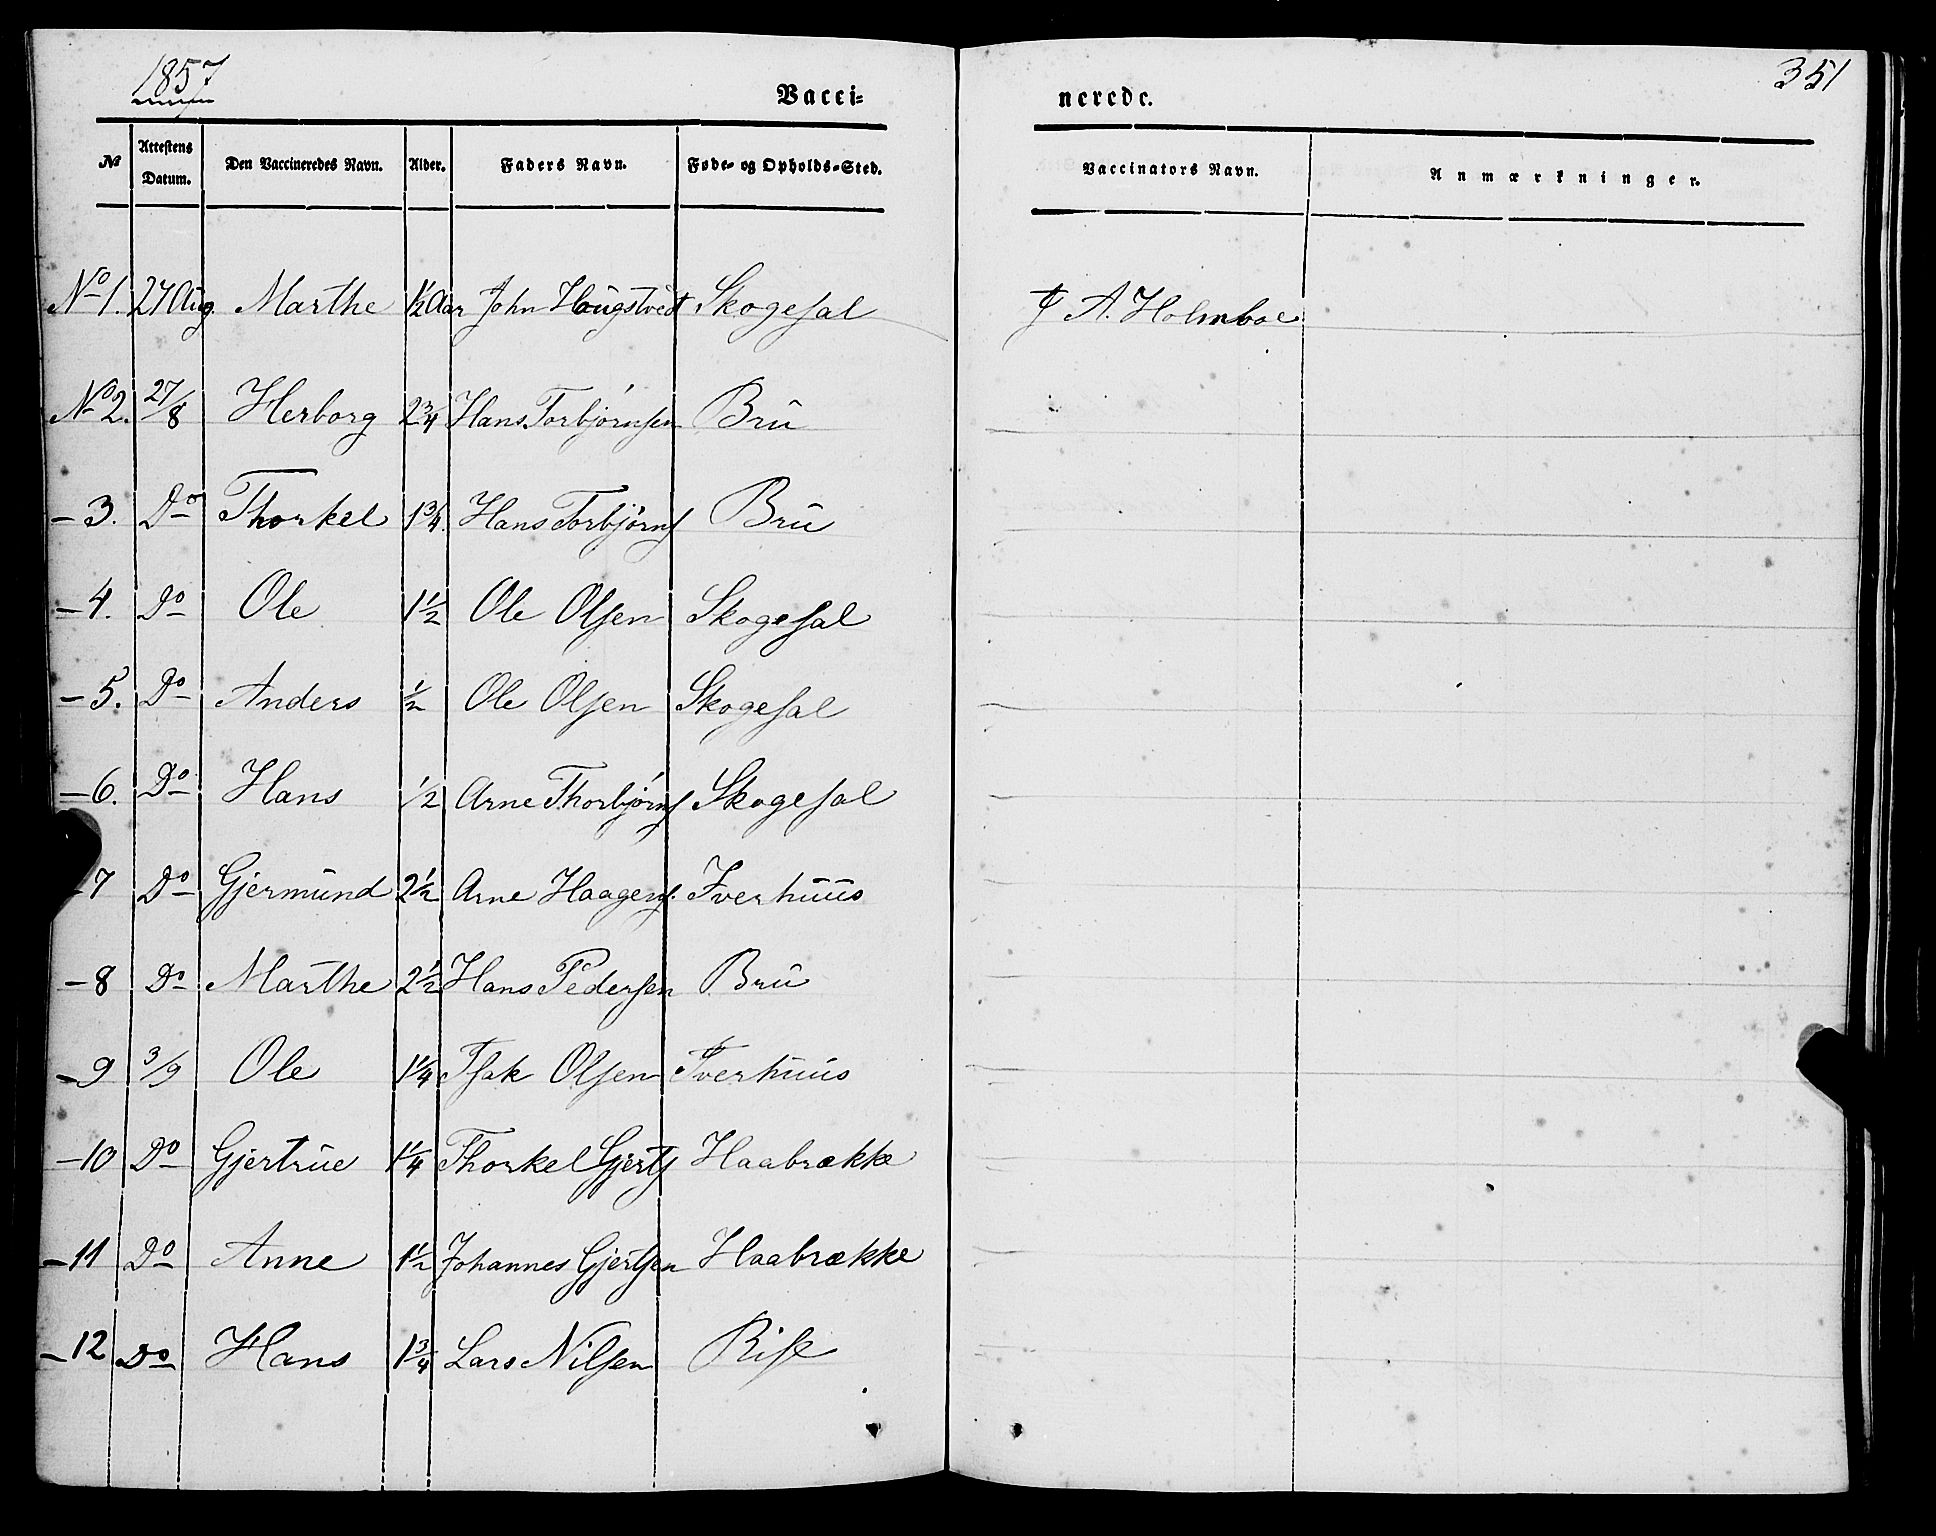 1857
351
Vacci=
nerede.
№ Attestens Datum. Den Vaccineredes Navn. Alder. Faders Navn. Føde- og Opholds-Sted. Vaccinators Navn. Anmærkninger.
No 1. 27 Aug. Marthe 1½ Aar John Hougstvedt Skogesal J A. Holmboe
No 2. 27/8 Herborg 2¾ Hans Torbjørnsen Brŭ
- 3. Do Thorkel 1¾ Hans Torbjørns Brŭ
- 4. Do Ole 1½ Ole Olsen Skogesal
- 5. Do Anders ½ Ole Olsen Skogesal
- 6. Do Hans 1/2 Arne Thorbjørns Skogesal
- 7 Do Gjermŭnd 2½ Arne Haagens. Iverhŭŭs
- 8 Do Marthe 2½ Hans Pedersen Brŭ
- 9 3/9 Ole 1¼ Isak Olsen Iverhŭŭs
- 10 Do Gjertrŭe 1¼ Thorkel Gjerts Haabrække
- 11 Do Anne 1½ Johannes Gjertsen Haabrække
- 12 Do Hans 1¾ Lars Nilsen Rise